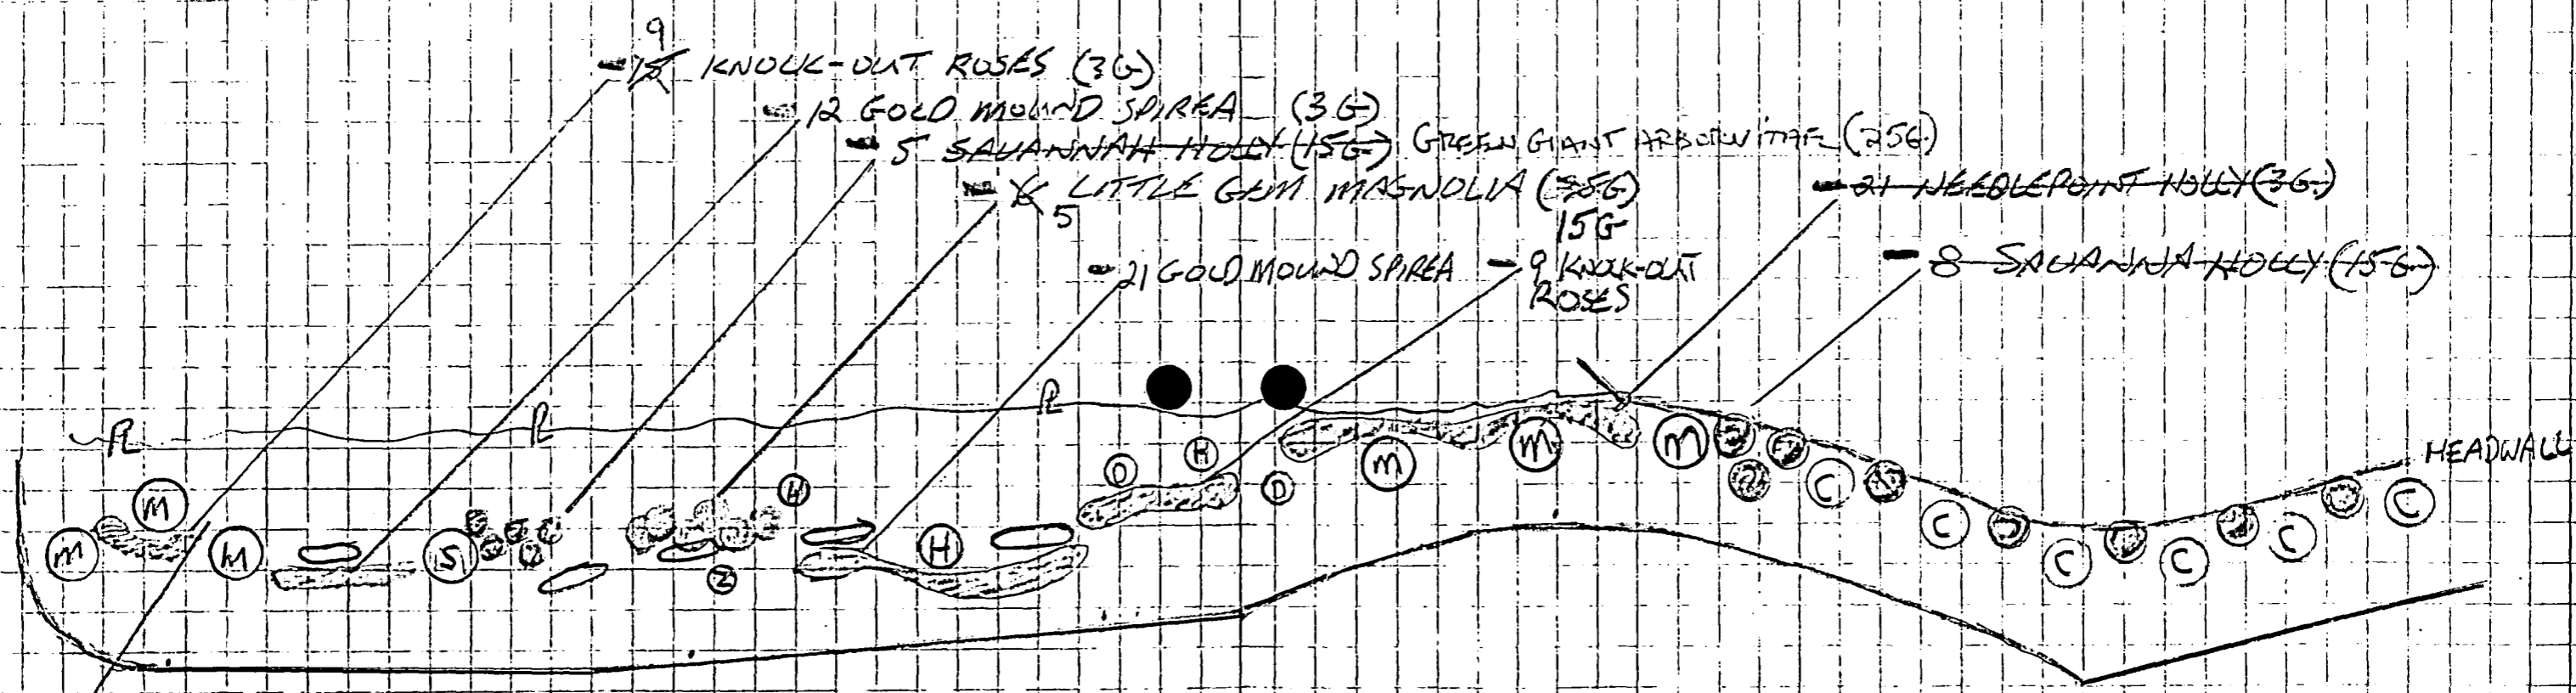 9
- 15 KNOCK-OUT ROSES (3G)
- 12 GOLD MOUND SPIREA (3G)
- 5 SAVANNAH HOLLY (15G) GREEN GIANT ARBORVITAE (25G)
- 6 LITTLE GEM MAGNOLIA (35G)
5
15G
- 21 NEEDLEPOINT HOLLY (3G)
- 21 GOLD MOUND SPIREA
- 9 KNOCK-OUT
ROSES
- 8 SAVANNA HOLLY (15G)
PL
PL
PL
HEADWALL
M
M
M
S
H
2
H
D
H
D
M
M
M
C
C
C
C
C
C